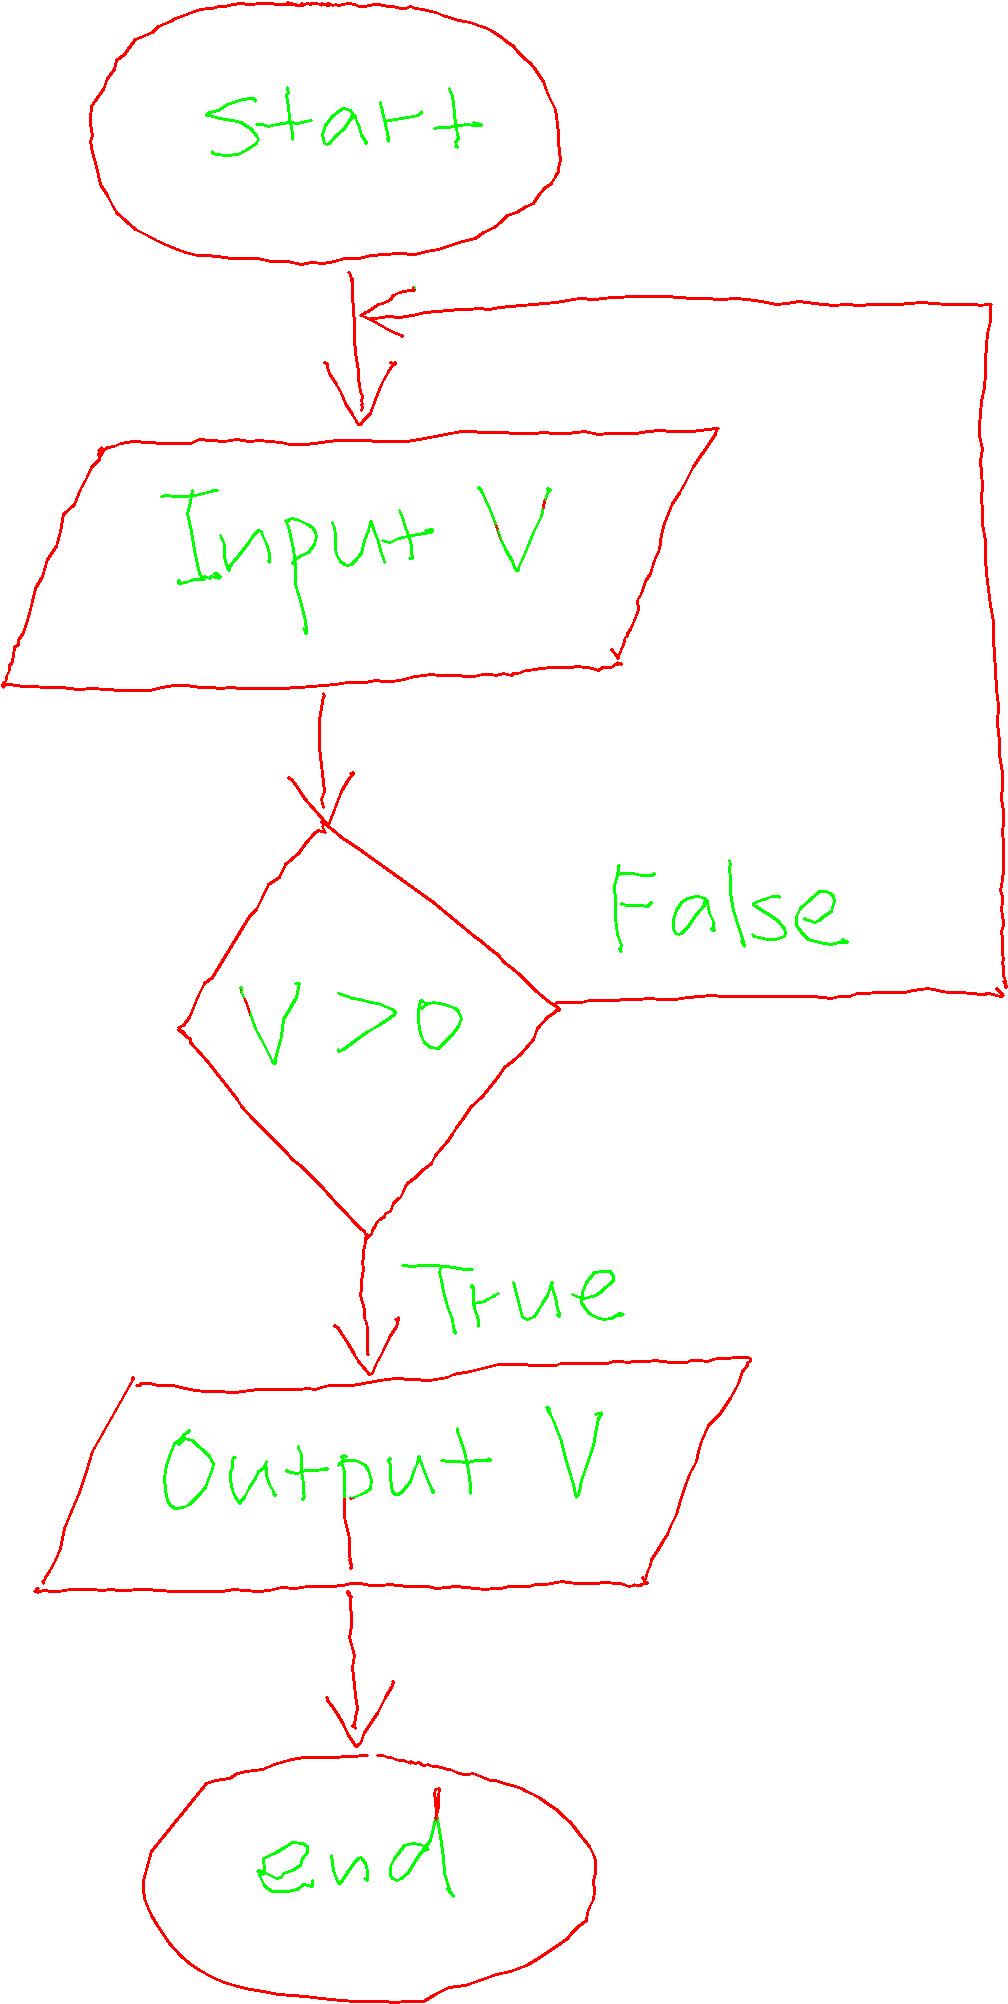 start
Input V
False
V >0
True
Output V
end